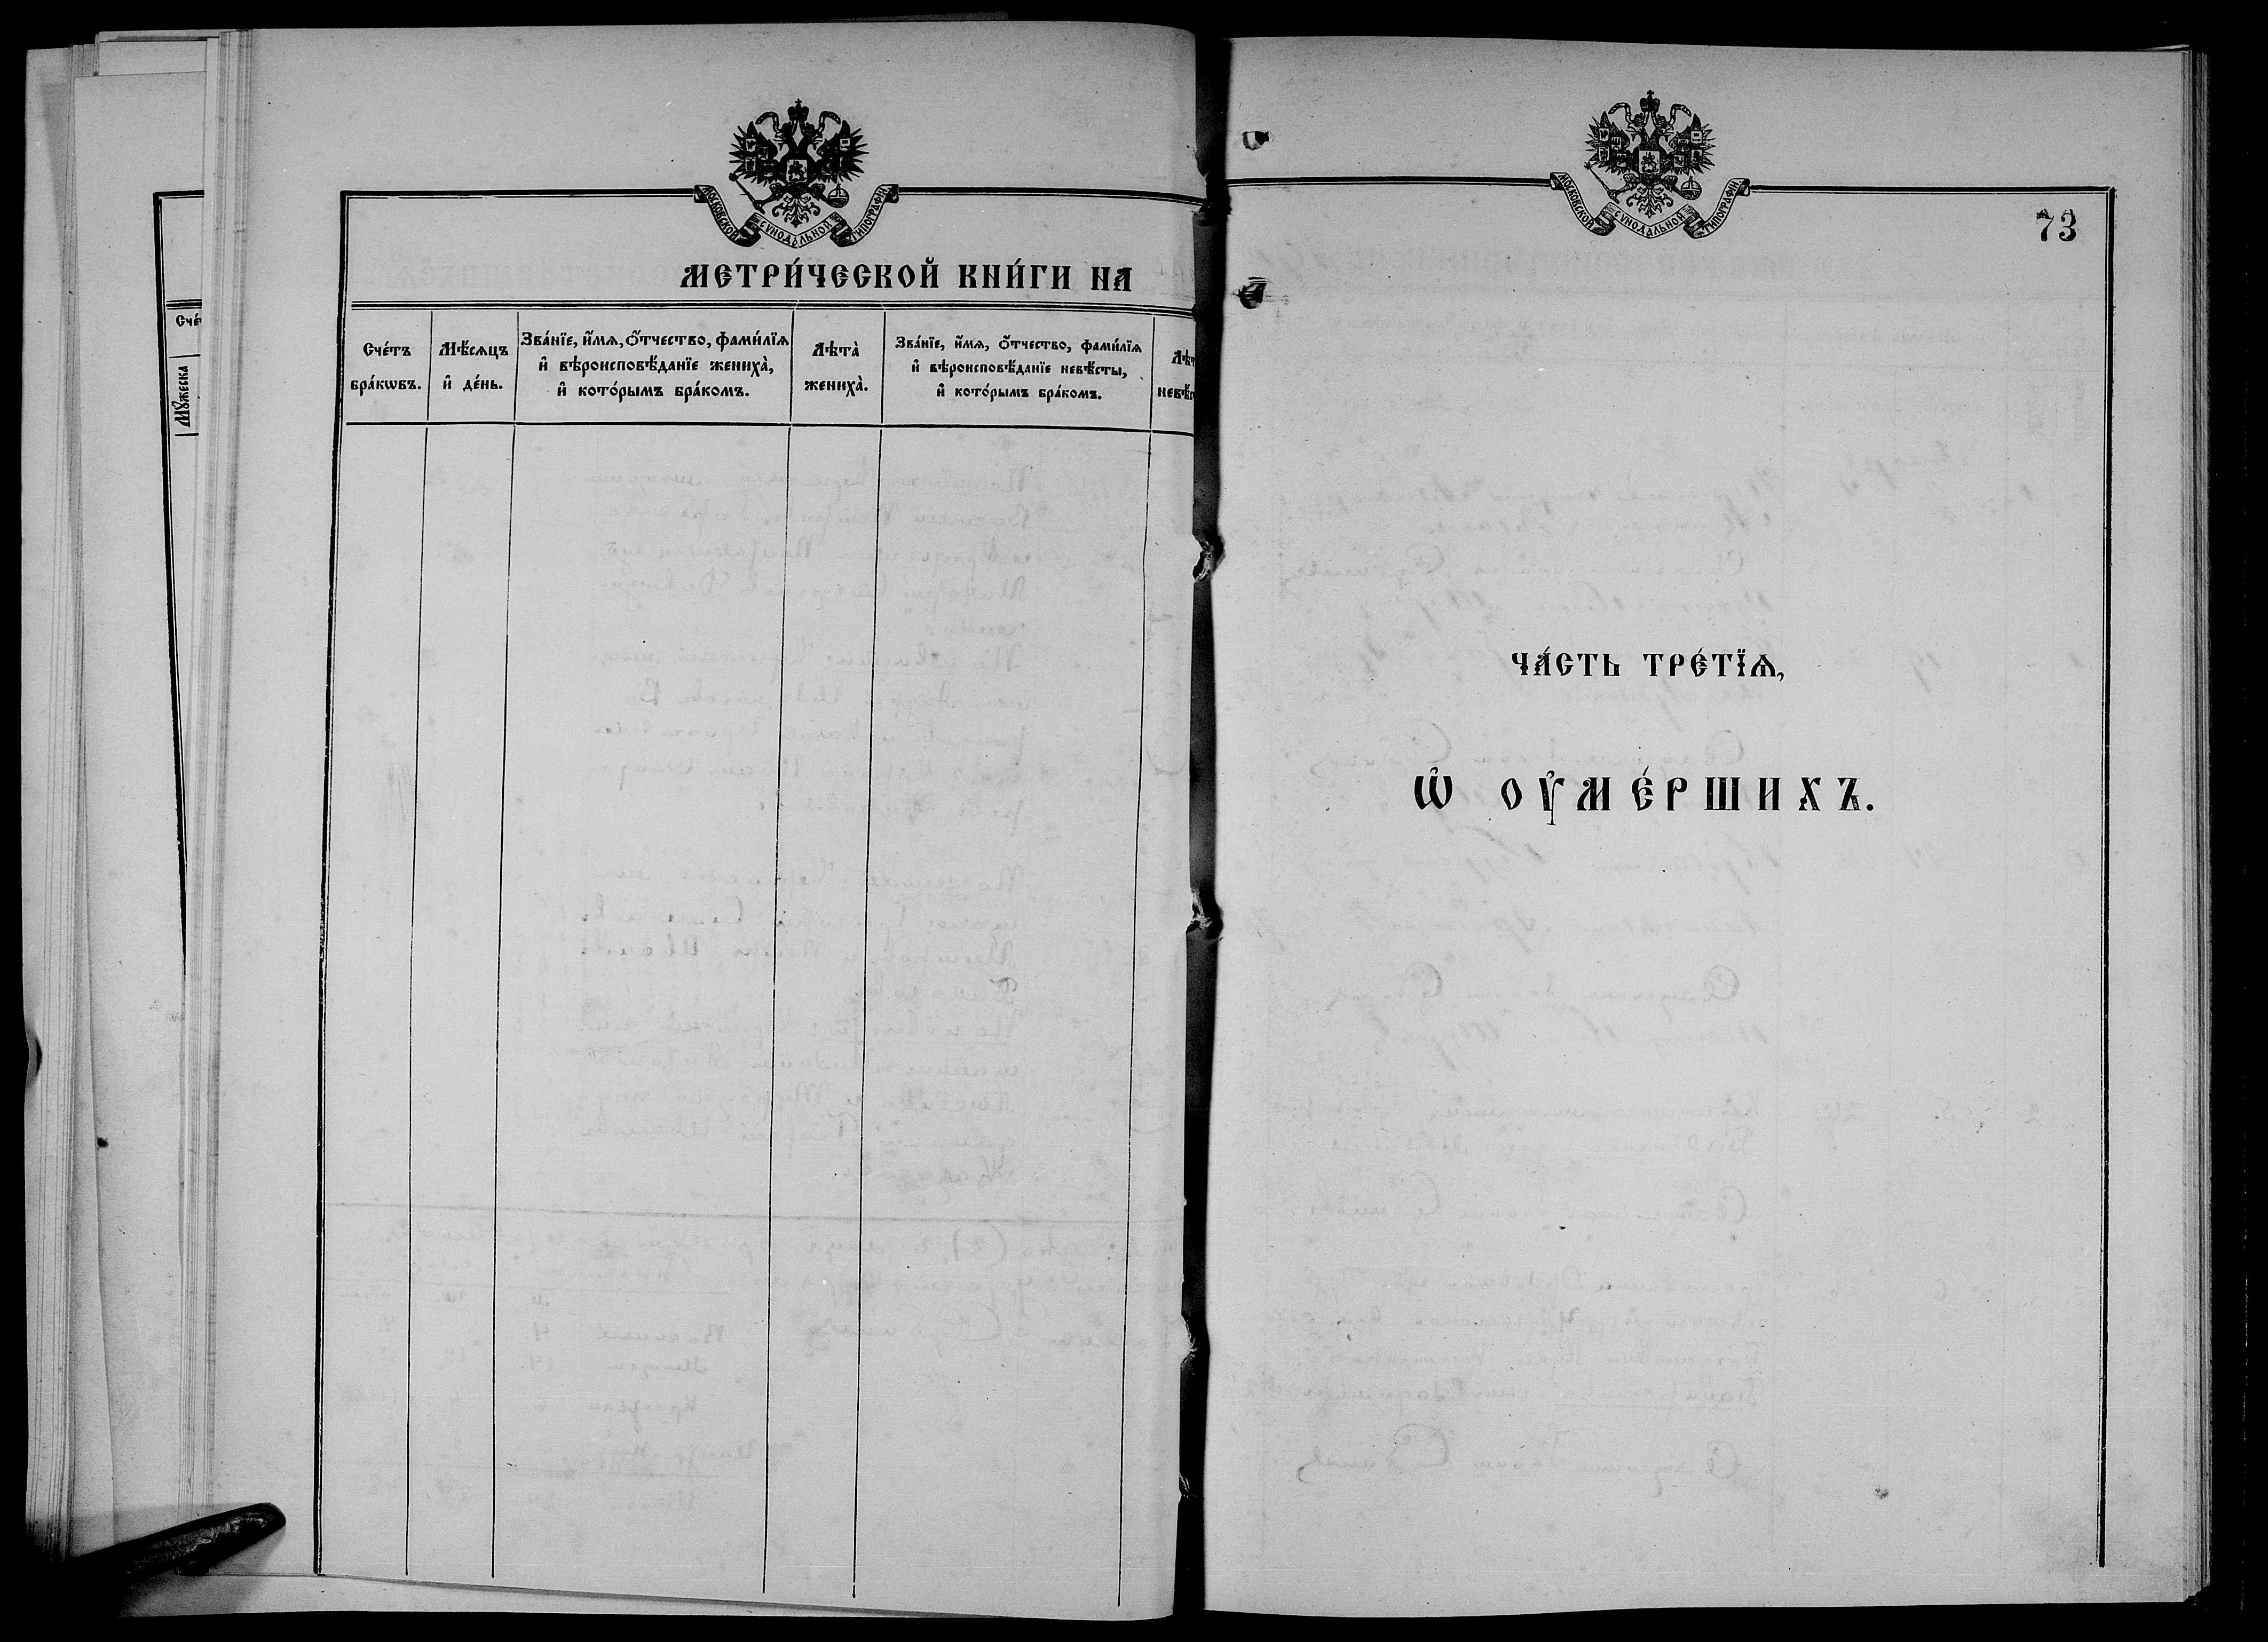 Счé
Мꙋ́жеска
МОСКОВСКОЙ СѴНОДАЛЬНОЙ ТИПОГРАФІИ
МЕТРИ́ЧЕСКОЙ КНИ́ГИ НА
Сче́тъ бра́кѡвъ.
Мѣ́сѧцъ и҆ де́нь.
Зва́нїе, и҆́мѧ, ѻ҆́тчество, фами́лїѧ
и҆ вѣроисповѣ́данїе жениха̀,
и҆ кото́рымъ бра́комъ.
Лѣта̀ жениха̀.
Зва́нїе, и҆́мѧ, ѻ҆́тчество, фами́лїѧ
и҆ вѣроисповѣ́данїе невѣ́сты,
и҆ кото́рымъ бра́комъ.
Лѣт
невѣ́с
МОСКОВСКОЙ СѴНОДАЛЬНОЙ ТИПОГРАФІИ
73
ЧА́СТЬ ТРЕ́ТЇѦ,
Ѡ҆ ОУ҆МЕ́РШИХЪ.